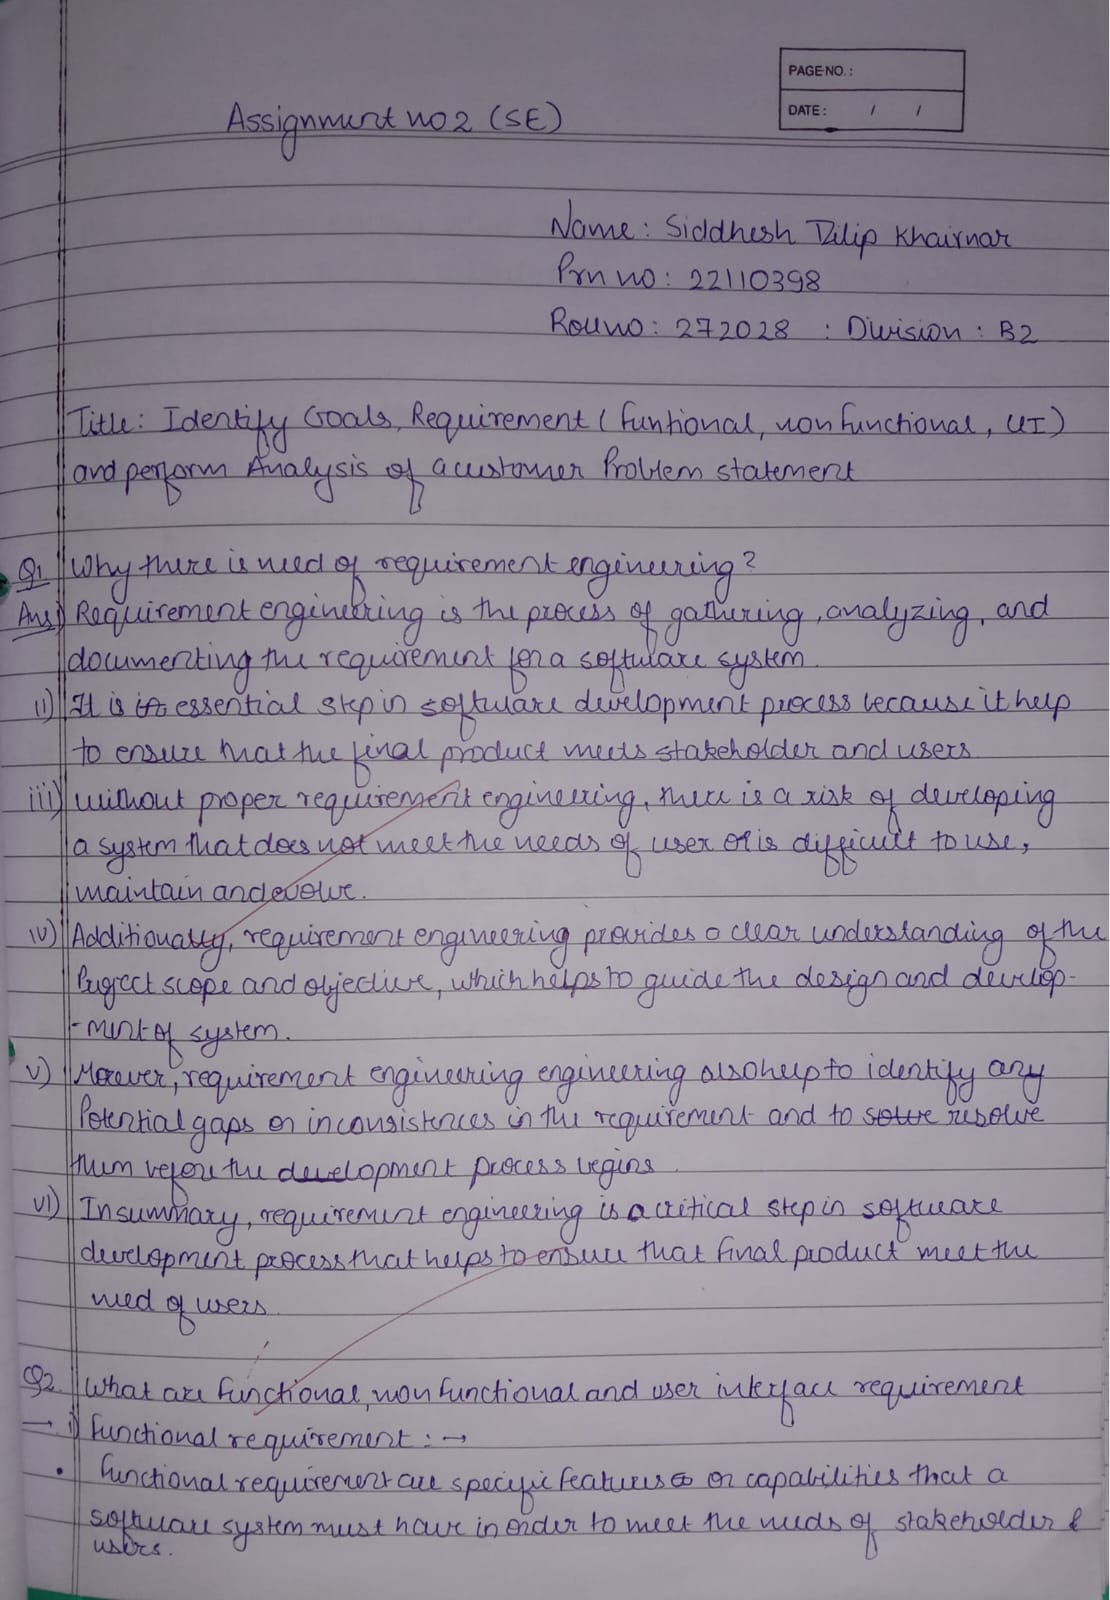 PAGE NO.:
DATE: / /
Assignment no 2 (SE)
Name: Siddhesh Dilip Khairnar
Prn no: 22110398
Roll no: 272028 : Division: B2
Title: Identify Goals, Requirement (Funtional, non functional, UI)
and perform Analysis of a customer Problem statement
Q1 Why there is need of requirement engineering?
Ans i) Requirement engineering is the process of gathering, analyzing, and
documenting the requirement for a software system.
ii) It is essential step in software development process because it help
to ensure that the final product meets stakeholder and users
iii) without proper requirement engineering, there is a risk of developing
a system that does not meet the needs of user or is difficult to use,
maintain and evolve.
iv) Additionally, requirement engineering provides a clear understanding of the
Project scope and objective, which helps to guide the design and develop-
-ment of system.
v) Morever, requirement engineering engineering also help to identify any
Potential gaps or inconsistences in the requirement and to solve resolve
them before the development process begins
vi) In summary, requirement engineering is a critical step in software
development process that helps to ensure that final product meet the
need of users.
Q2. What are functional, non functional and user interface requirement
→ i) Functional requirement: →
• Functional requirement are specific features or capabilities that a
software system must have in order to meet the needs of stakeholder &
users.